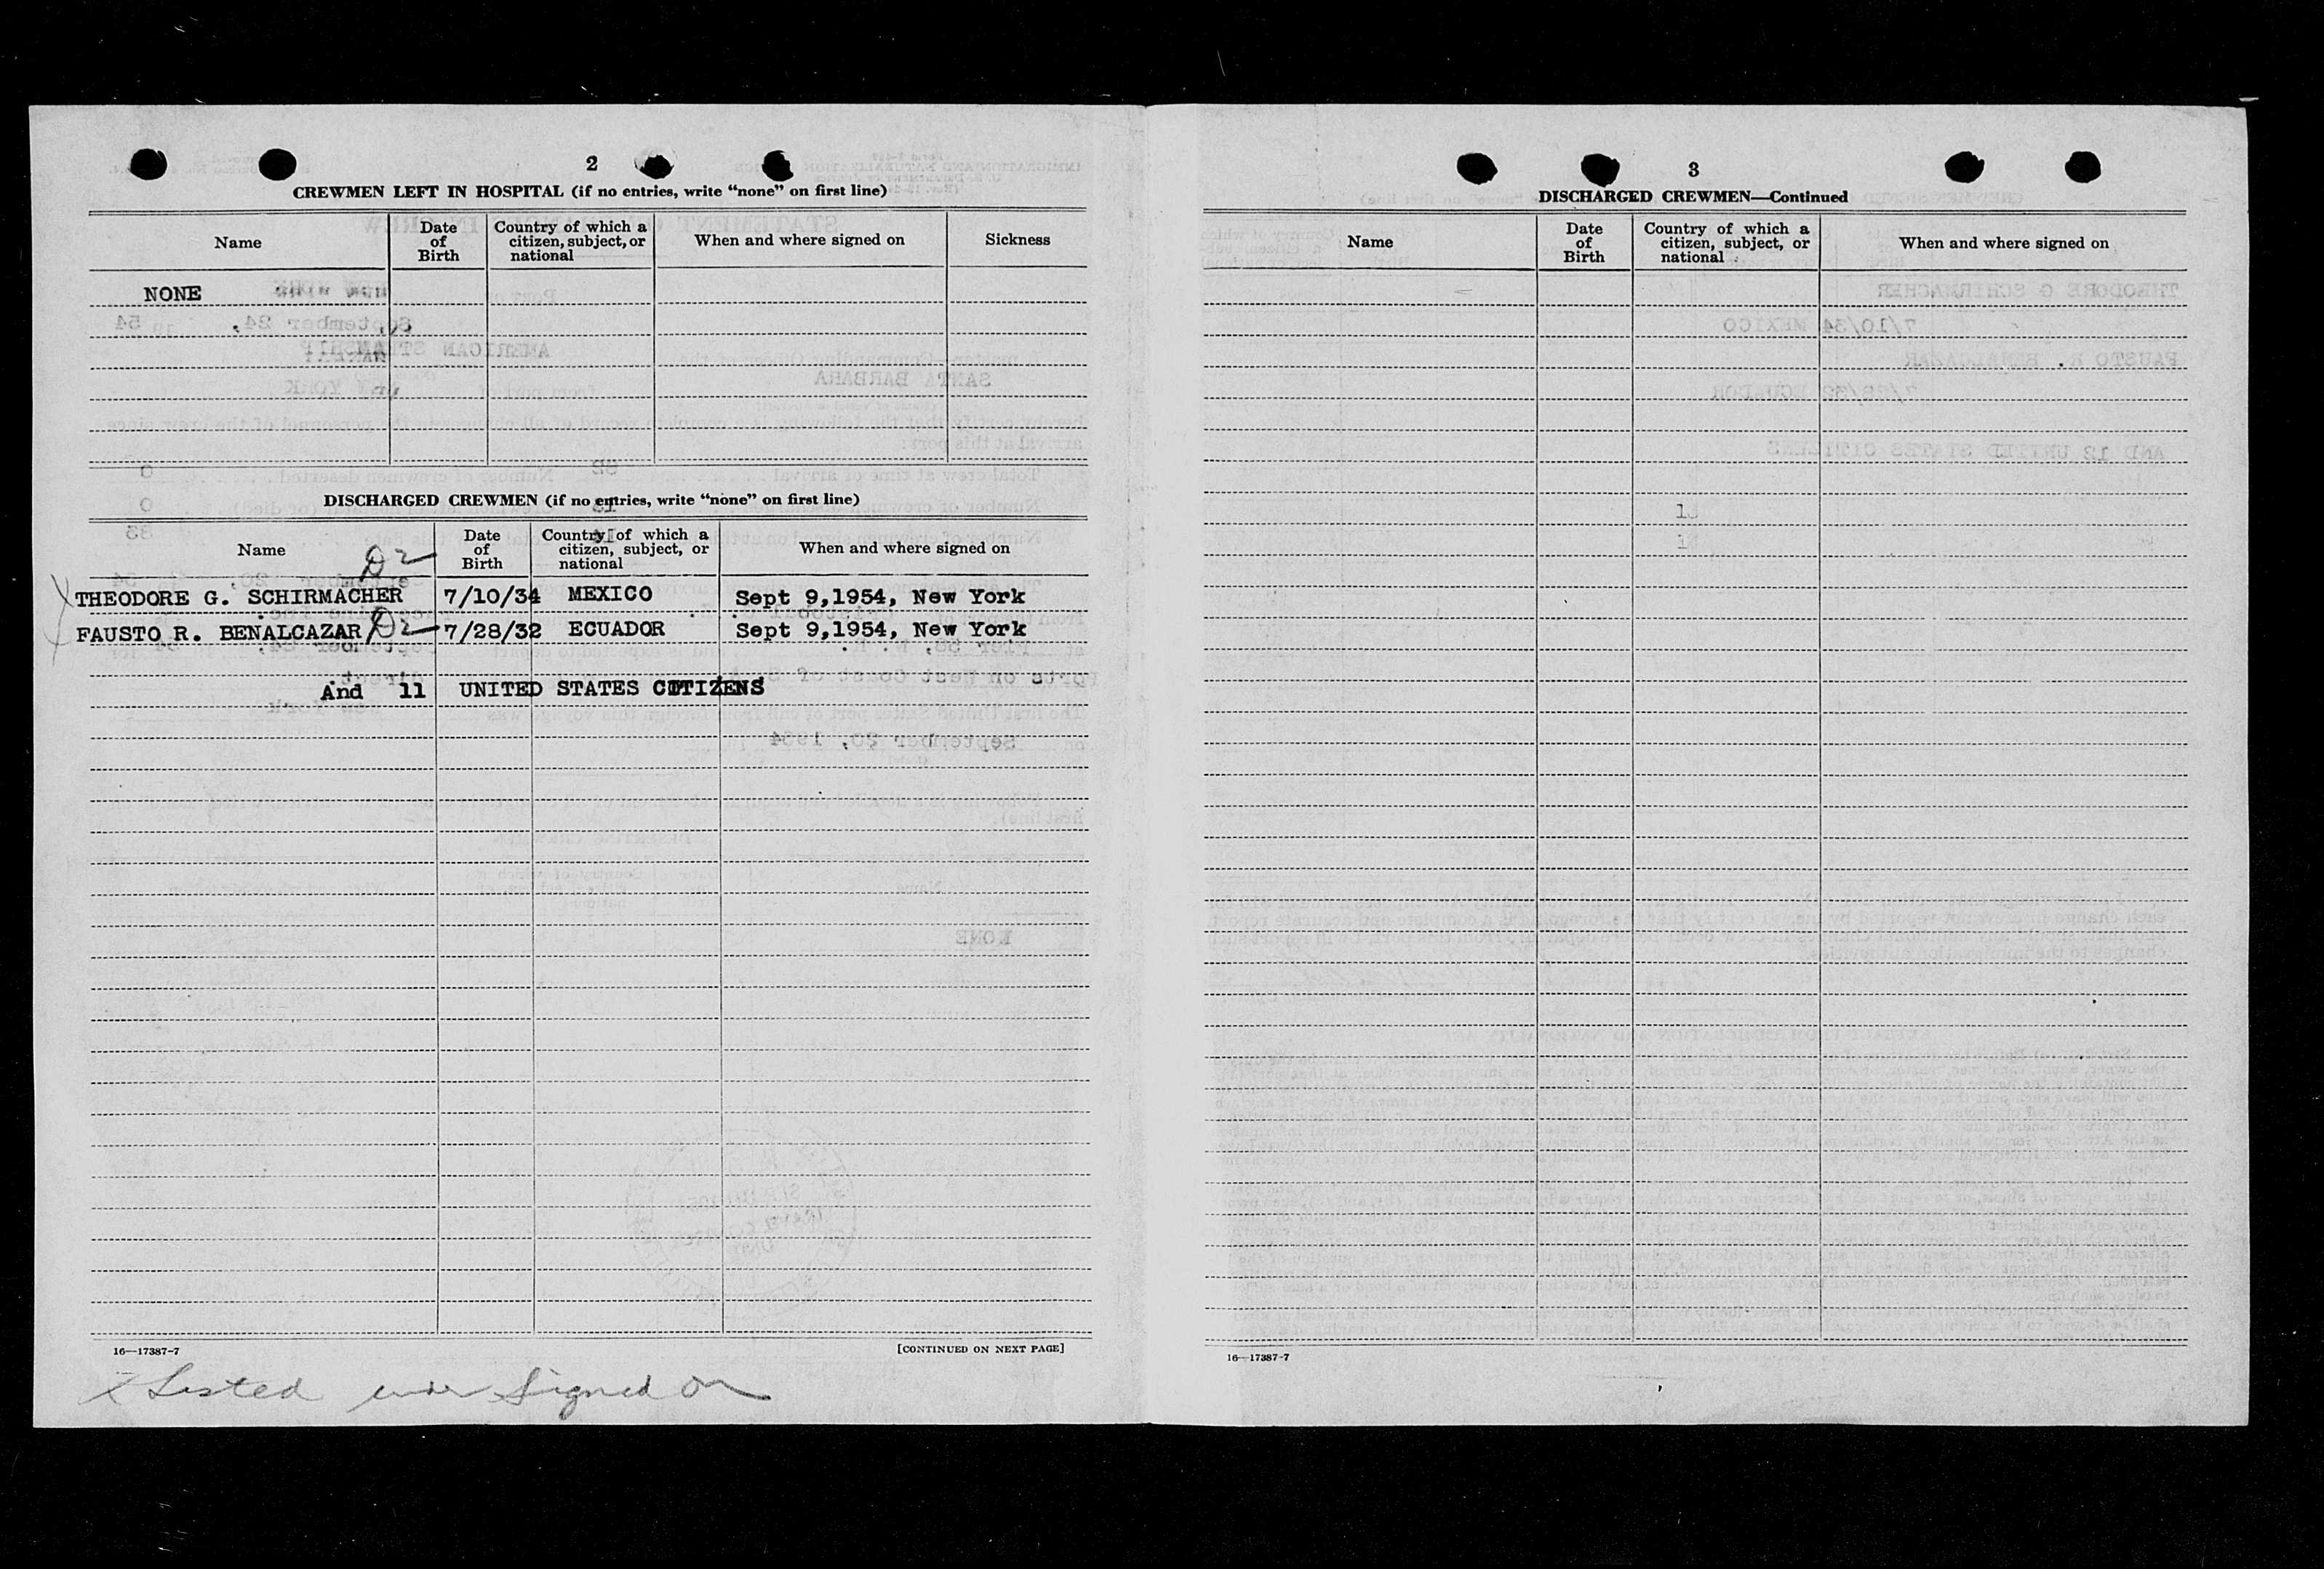 2
CREWMEN LEFT IN HOSPITAL (if no entries, write “none” on first line)
Name
Date of Birth
Country of which a citizen, subject, or national
When and where signed on
Sickness
NONE
DISCHARGED CREWMEN (if no entries, write “none” on first line)
Name
Date of Birth
Country of which a citizen, subject, or national
When and where signed on
D2
THEODORE G. SCHIRMACHER 7/10/34 MEXICO Sept 9,1954, New York
FAUSTO R. BENALCAZAR D2 7/28/32 ECUADOR Sept 9,1954, New York
And 11 UNITED STATES CITIZENS
16—17387-7
[CONTINUED ON NEXT PAGE]
x Listed under Signed on
3
DISCHARGED CREWMEN—Continued
Name
Date of Birth
Country of which a citizen, subject, or national
When and where signed on
16—17387-7